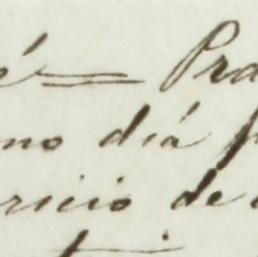 é = Pra
mo diá
ricio de